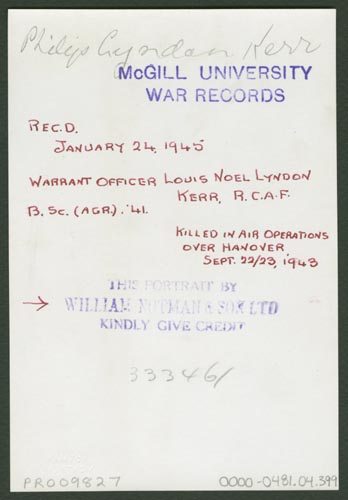 Philip Lyndon Kerr
McGILL UNIVERSITY
WAR RECORDS
REC.D.
JANUARY 24, 1945
WARRANT OFFICER LOUIS NOEL LYNDON
KERR, R.C.A.F.
B.Sc. (AGR.) '41.
KILLED IN AIR OPERATIONS
OVER HANOVER
SEPT. 22/23, 1943
THIS PORTRAIT BY
→ WILLIAM NOTMAN & SON LTD
KINDLY GIVE CREDIT
333461
PR009827
0000-0481.04.399